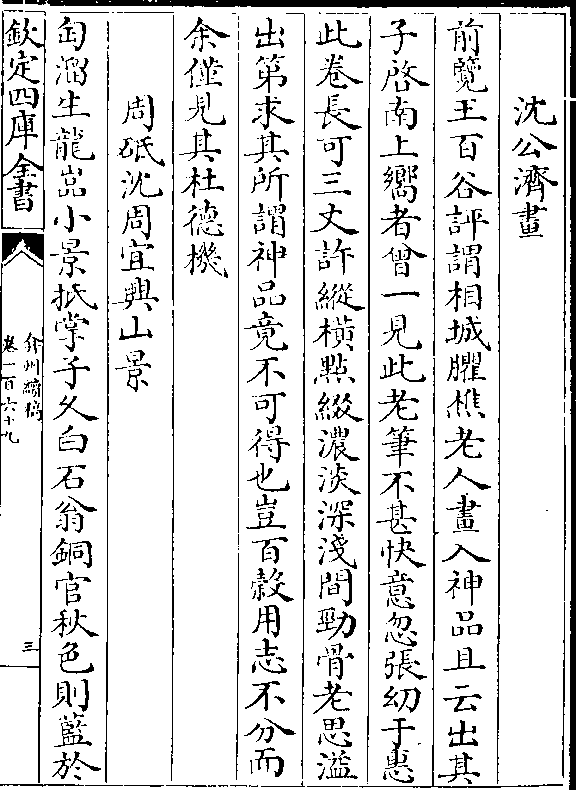 沈公濟畫
前覽王百谷評謂相城臞樵老人畫入神品且云出其
子啓南上嚮者曾一見此老筆不甚快意忽張幼于惠
此卷長可三丈許縱橫㸃綴濃淡深淺間勁骨老思溢
出第求其所謂神品竟不可得也豈百榖用志不分而
余僅見其杜德機
周砥沈周宜興山景
匋溜生龍嵓小景抵掌子久白石翁銅官秋色則藍於
欽定四庫全書
弇州續稿
卷一百六十九
三